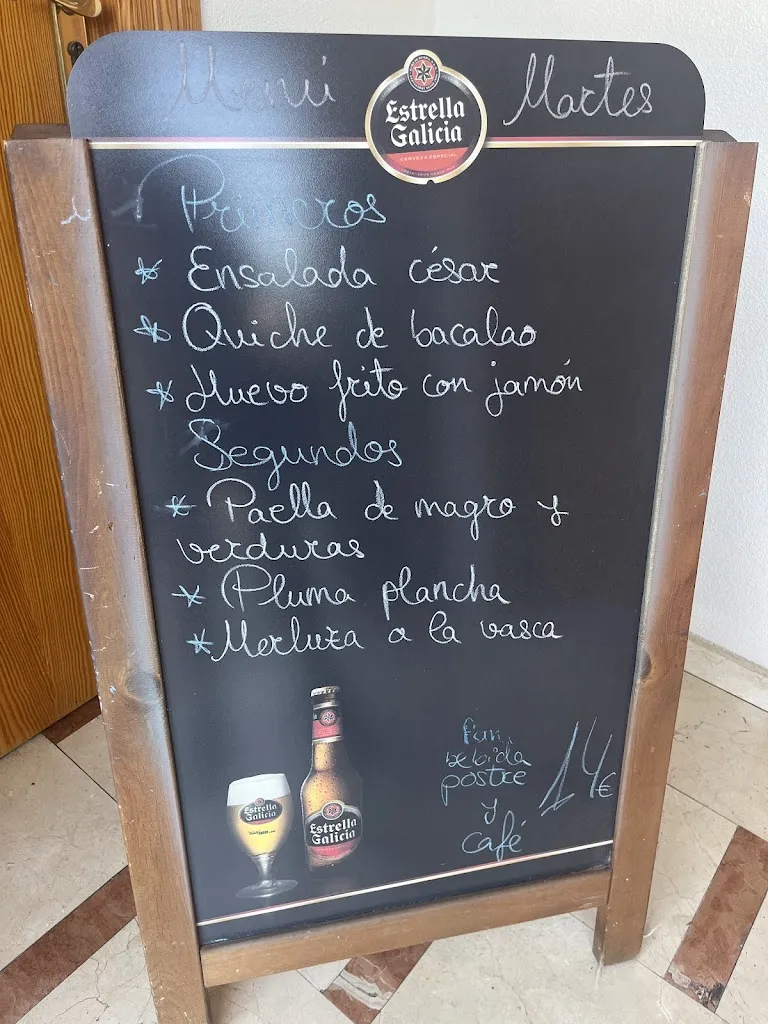 Menú Martes
Estrella
Galicia
CERVEZA ESPECIAL
Primeros
* Ensalada césar
* Quiche de bacalao
* Huevo frito con jamón
Segundos
* Paella de magro y
verduras
* Pluma plancha
* Merluza a la vasca
Pan
bebida
postre
y
café
14€
Estrella
Galicia
Estrella
Galicia